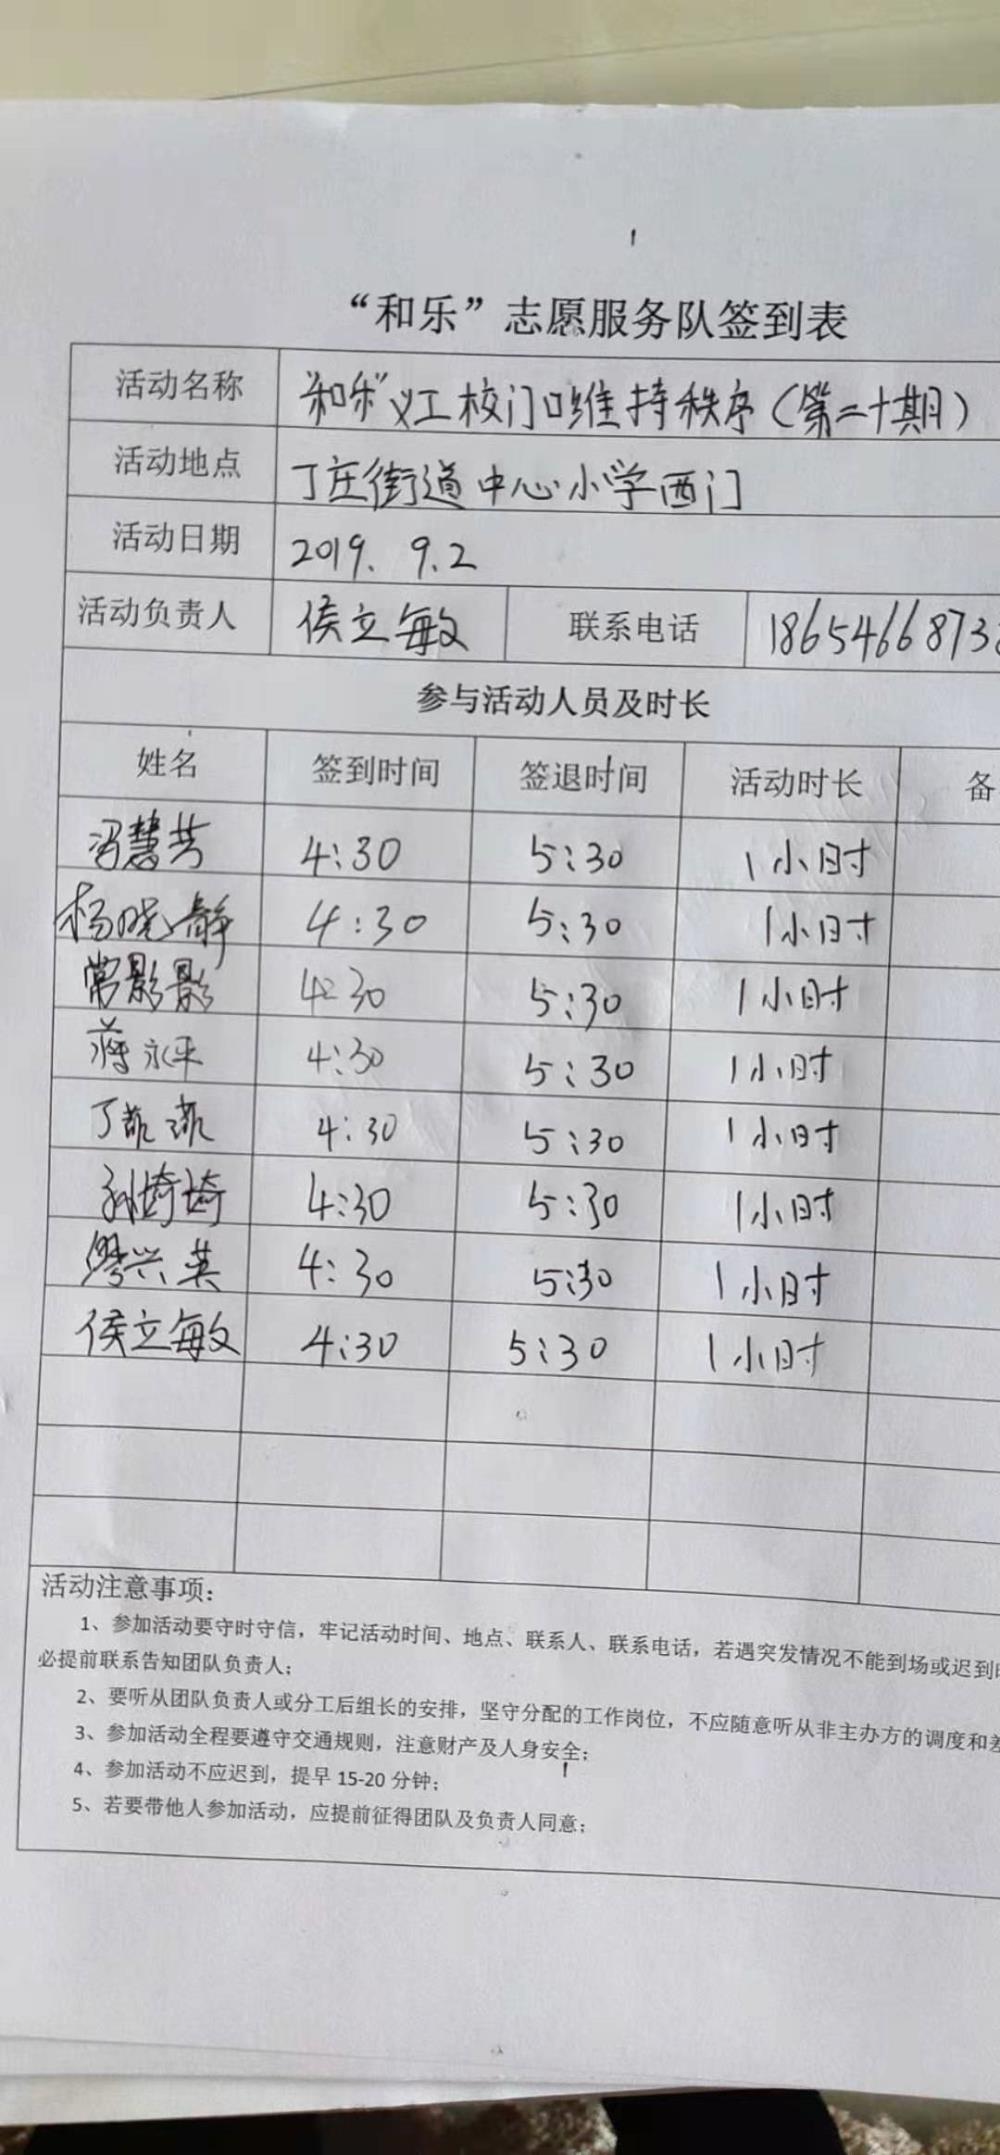 “和乐”志愿服务队签到表
活动名称 “和乐”义工校门口维持秩序（第二十期）
活动地点 丁庄街道中心小学西门
活动日期 2019. 9.2
活动负责人 侯立敏 联系电话 1865466873
参与活动人员及时长
姓名 签到时间 签退时间 活动时长 备
冯慧芳 4:30 5:30 1小时
杨晓静 4:30 5:30 1小时
常影影 4:30 5:30 1小时
蒋永平 4:30 5:30 1小时
丁 4:30 5:30 1小时
孙埼埼 4:30 5:30 1小时
缪兴英 4:30 5:30 1小时
侯立敏 4:30 5:30 1小时
活动注意事项：
1、参加活动要守时守信，牢记活动时间、地点、联系人、联系电话，若遇突发情况不能到场或迟到
必提前联系告知团队负责人；
2、要听从团队负责人或分工后组长的安排，坚守分配的工作岗位，不应随意听从非主办方的调度和差
3、参加活动全程要遵守交通规则，注意财产及人身安全；
4、参加活动不应迟到，提早 15-20 分钟；
5、若要带他人参加活动，应提前征得团队及负责人同意；